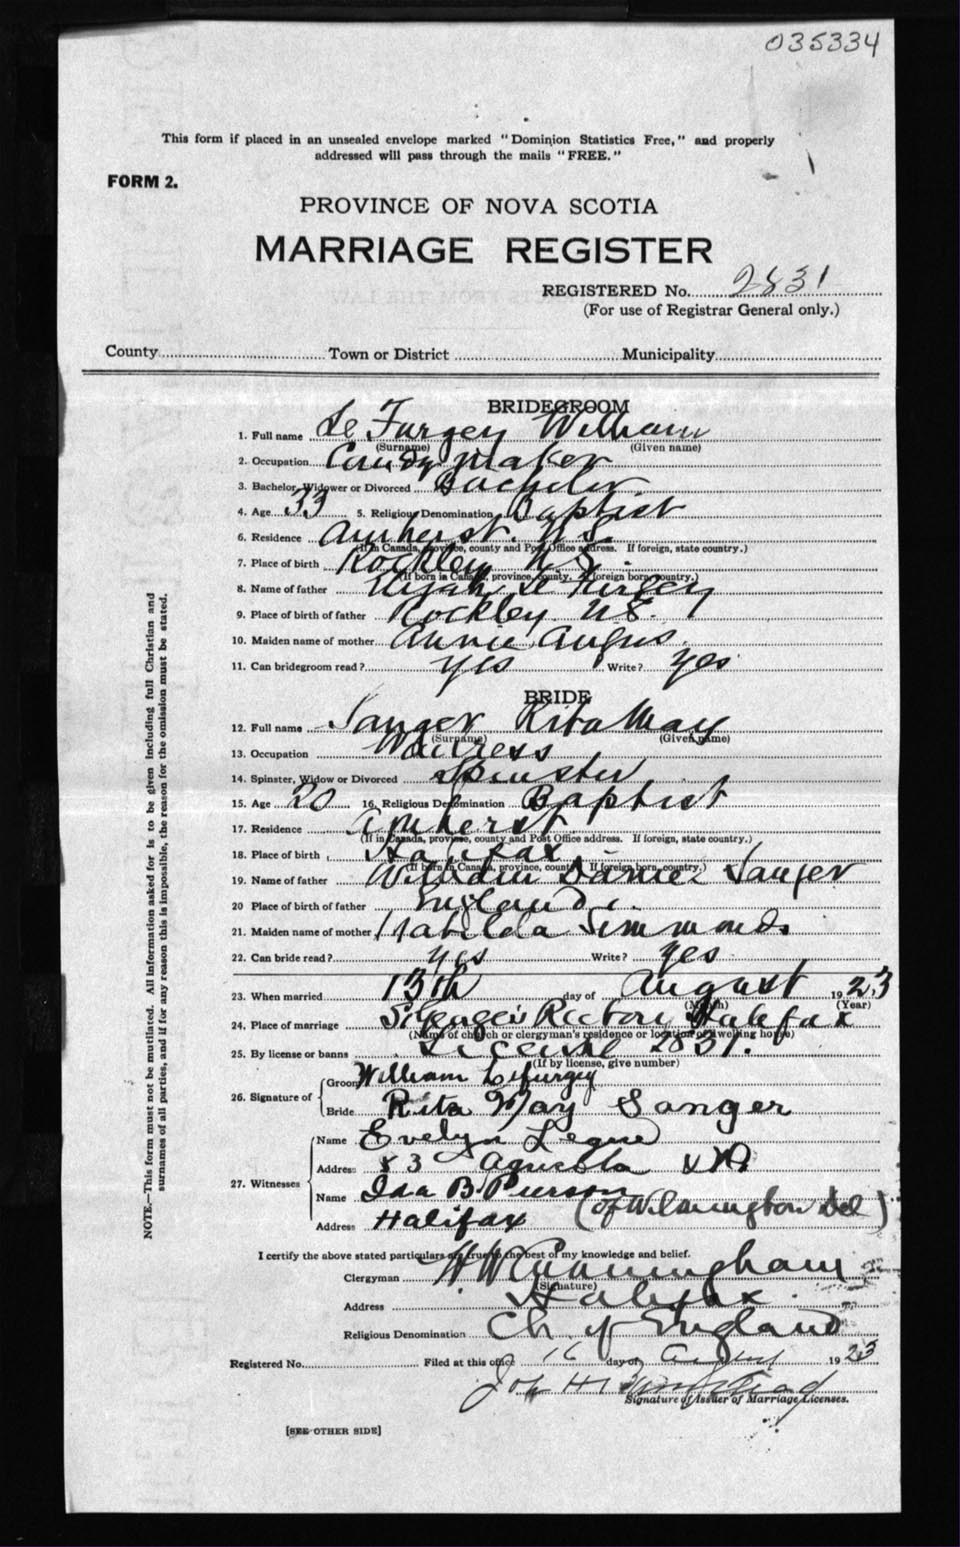 035334
This form if placed in an unsealed envelope marked "Dominion Statistics Free," and properly
addressed will pass through the mails "FREE."
FORM 2.
PROVINCE OF NOVA SCOTIA
MARRIAGE REGISTER
REGISTERED No. 2831
(For use of Registrar General only.)
County Town or District Municipality
BRIDEGROOM
1. Full name Le Furgey William
(Surname) (Given name)
2. Occupation Candy Maker
3. Bachelor, Widower or Divorced Bachelor
4. Age 33 5. Religious Denomination Baptist
6. Residence Amherst. N.S.
(If in Canada, province, county and Post Office address. If foreign, state country.)
7. Place of birth Rockley N.S.
(If born in Canada, province, county. If foreign born, country.)
8. Name of father Elijah Le Furgey
9. Place of birth of father Rockley N.S.
10. Maiden name of mother Annie Angus
11. Can bridegroom read? yes Write? yes
BRIDE
12. Full name Sanger Rita May
(Surname) (Given name)
13. Occupation Waitress
14. Spinster, Widow or Divorced Spinster
15. Age 20 16. Religious Denomination Baptist
17. Residence Amherst
(If in Canada, province, county and Post Office address. If foreign, state country.)
18. Place of birth Halifax
(If born in Canada, province, county. If foreign born, country.)
19. Name of father William Daniel Sanger
20 Place of birth of father England
21. Maiden name of mother Matilda Simmonds
22. Can bride read? yes Write? yes
23. When married 13th day of August 1923
(Month) (Year)
24. Place of marriage St George's Rectory Halifax
(Name of church or clergyman's residence or location of dwelling house)
25. By license or banns License 2831.
(If by license, give number)
26. Signature of Groom William Lefurgey
Bride Rita May Sanger
27. Witnesses
Name Evelyn
Address 83
Name Ida B. Pierson
Address Halifax (of Wilmington Del)
I certify the above stated particulars are true to the best of my knowledge and belief.
Clergyman H W Cunningham
(Signature)
Address Halifax
Religious Denomination Ch. of England
Registered No. Filed at this office 16 day of August 1923
Signature of Issuer of Marriage Licenses.
[SEE OTHER SIDE]
NOTE.—This form must not be mutilated. All information asked for is to be given including full Christian and
surnames of all parties, and if for any reason this is impossible, the reason for the omission must be stated.